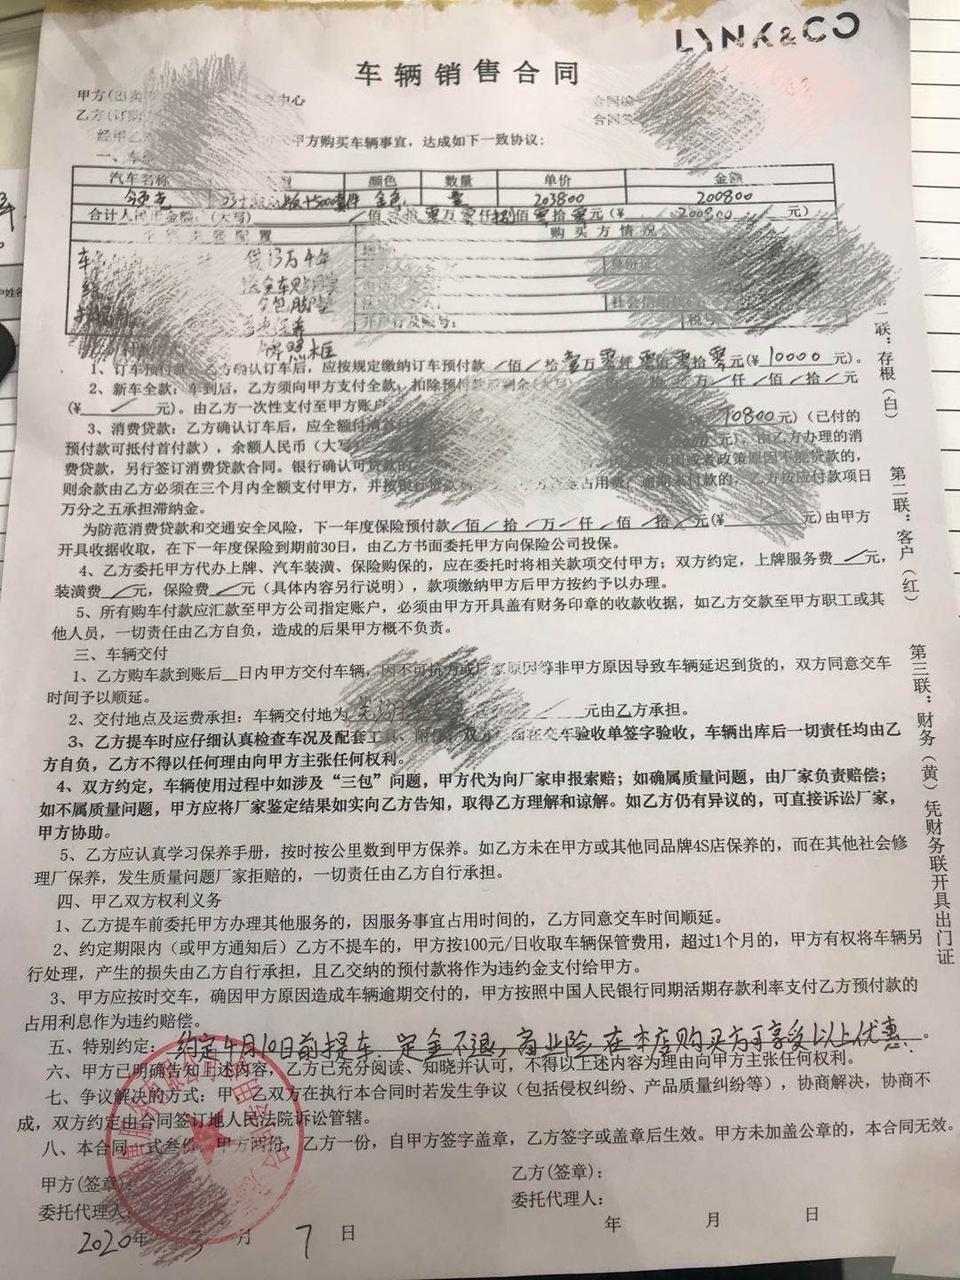 LYNK&CO
车辆销售合同
甲方(出卖
中心
乙方(订购
经甲乙
甲方购买车辆事宜，达成如下一致协议：
一、车
汽车名称 颜色 数量 单价 金额
领克 版+5000套件 金色 壹 203800 200800
合计人民币金额：(大写) 佰 拾零万零仟捌佰零拾零元(¥ 200800 元)
购买方情况
贷13万4年
全车贴膜
全包脚垫
牌照框
开户行及账号： 税号
1、订车预付款：乙方确认订车后，应按规定缴纳订车预付款/佰/拾壹万零仟零佰零拾零元(¥10000元)。
2、新车全款：车到后，乙方须向甲方支付全款，扣除预付款后剩余(大写) 拾/万/仟/佰/拾/元
(¥ / 元)。由乙方一次性支付至甲方账户
3、消费贷款：乙方确认订车后，应全额付清首付 70800元)(已付的
预付款可抵付首付款)，余额人民币(大写) 元)，由乙方办理的消
费贷款，另行签订消费贷款合同。银行确认可贷款的， 或者政策原因不能贷款的，
则余款由乙方必须在三个月内全额支付甲方，并按银行 资金占用费，逾期未付款的，乙方按应付款项日
万分之五承担滞纳金。
为防范消费贷款和交通安全风险，下一年度保险预付款/佰/拾/万/仟/佰/拾/元(¥ / 元)由甲方
开具收据收取，在下一年度保险到期前30日，由乙方书面委托甲方向保险公司投保。
4、乙方委托甲方代办上牌、汽车装潢、保险购保的，应在委托时将相关款项交付甲方；双方约定，上牌服务费/元，
装潢费/元，保险费/元（具体内容另行说明），款项缴纳甲方后甲方按约予以办理。
5、所有购车付款应汇款至甲方公司指定账户，必须由甲方开具盖有财务印章的收款收据，如乙方交款至甲方职工或其
他人员，一切责任由乙方自负，造成的后果甲方概不负责。
三、车辆交付
1、乙方购车款到账后__日内甲方交付车辆，因不可抗力或厂家原因等非甲方原因导致车辆延迟到货的，双方同意交车
时间予以顺延。
2、交付地点及运费承担：车辆交付地为 元由乙方承担。
3、乙方提车时应仔细认真检查车况及配套工具、附件，双方 在交车验收单签字验收，车辆出库后一切责任均由乙
方自负，乙方不得以任何理由向甲方主张任何权利。
4、双方约定，车辆使用过程中如涉及“三包”问题，甲方代为向厂家申报索赔；如确属质量问题，由厂家负责赔偿；
如不属质量问题，甲方应将厂家鉴定结果如实向乙方告知，取得乙方理解和谅解。如乙方仍有异议的，可直接诉讼厂家，
甲方协助。
5、乙方应认真学习保养手册，按时按公里数到甲方保养。如乙方未在甲方或其他同品牌4S店保养的，而在其他社会修
理厂保养，发生质量问题厂家拒赔的，一切责任由乙方自行承担。
四、甲乙双方权利义务
1、乙方提车前委托甲方办理其他服务的，因服务事宜占用时间的，乙方同意交车时间顺延。
2、约定期限内（或甲方通知后）乙方不提车的，甲方按100元/日收取车辆保管费用，超过1个月的，甲方有权将车辆另
行处理，产生的损失由乙方自行承担，且乙交纳的预付款将作为违约金支付给甲方。
3、甲方应按时交车，确因甲方原因造成车辆逾期交付的，甲方按照中国人民银行同期活期存款利率支付乙方预付款的
占用利息作为违约赔偿。
五、特别约定：约定4月10日前提车，定金不退，商业险在本店购买方可享受以上优惠。
六、甲方已明确告知上述内容，乙方已充分阅读、知晓并认可，不得以上述内容为理由向甲方主张任何权利。
七、争议解决的方式：甲、乙双方在执行本合同时若发生争议（包括侵权纠纷、产品质量纠纷等），协商解决，协商不
成，双方约定由合同签订地人民法院诉讼管辖。
八、本合同一式叁份，甲方两份，乙方一份，自甲方签字盖章，乙方签字或盖章后生效。甲方未加盖公章的，本合同无效。
甲方(签章)： 乙方(签章)：
委托代理人 委托代理人：
2020年 3月 7日 年 月 日
第一联：存根（白） 第二联：客户（红） 第三联：财务（黄）凭财务联开具出门证